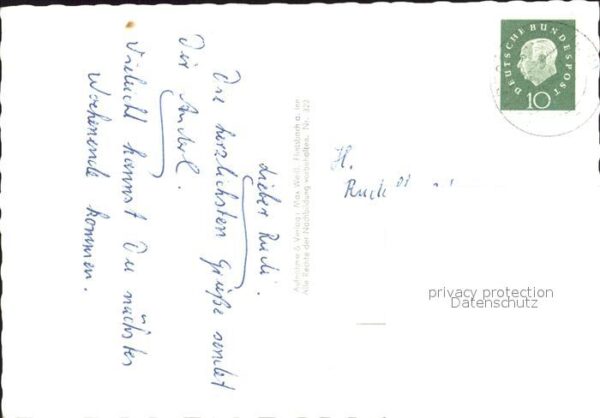 Lieber Rudi.
Die herzlichsten Grüße sendet
Dir
Vielleicht kannst Du nächstes
Wochenende kommen.
Aufnahme & Verlag: Max Weiß,
Alle Rechte der Nachbildung vorbehalten. Nr. 322
H.
DEUTSCHE BUNDESPOST
10
privacy protection
Datenschutz